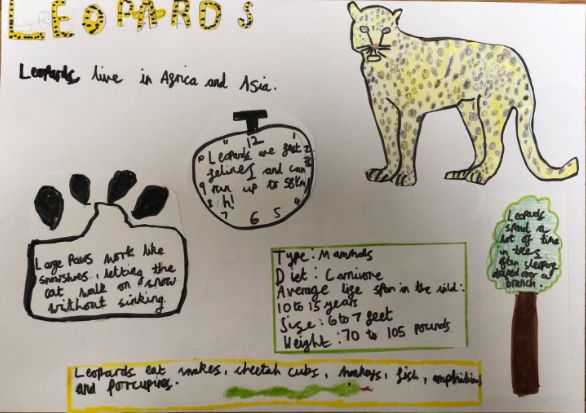 LEOPARDS
Leopards live in Africa and Asia.
11 12
10 Leopards are fast
felines and can
9 run up to 58km/
8 h!
7 6 5 4
Large paws work like
snowshoes, letting the
cat walk on snow
without sinking.
Type: Mammals
Diet: Carnivore
Average life span in the wild:
10 to 15 years
Size: 6 to 7 feet
Weight: 70 to 105 pounds
Leopards
spend a
lot of time
in trees
often sleeping
draped over a
branch.
Leopards eat snakes, cheetah cubs, monkeys, fish, amphibians
and porcupines.